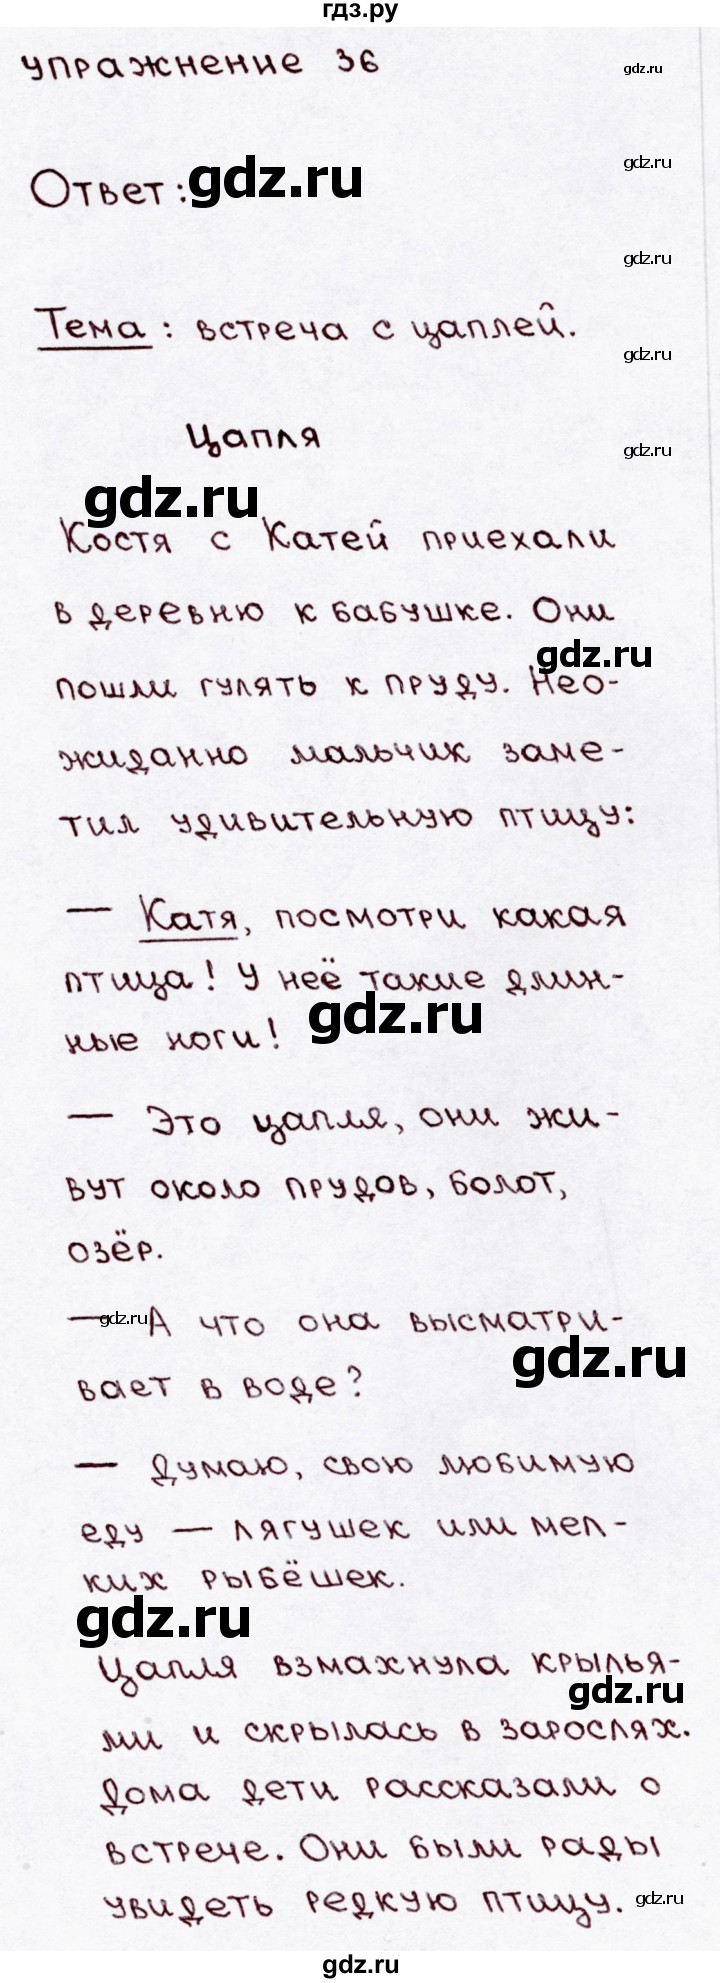 гдз.ру
упражнение 36
gdz.ru
Ответ: gdz.ru
gdz.ru
gdz.ru
Тема: встреча с цаплей.
gdz.ru
Цапля
gdz.ru
gdz.ru
Костя с Катей приехали
в деревню к бабушке. Они
gdz.ru
пошли гулять к пруду. Нео-
жиданно мальчик заме-
тил удивительную птицу:
— Катя, посмотри какая
птица! У неё такие длин-
gdz.ru
ные ноги!
— Это цапля, они жи-
вут около прудов, болот,
озёр.
— gdz.ru А что она высматри-
gdz.ru
вает в воде?
— Думаю, свою любимую
еду — лягушек или мел-
ких рыбёшек.
gdz.ru
Цапля взмахнула крылья-
gdz.ru
ми и скрылась в зарослях.
Дома дети рассказали о
встрече. Они были рады
увидеть редкую птицу.
gdz.ru
gdz.ru